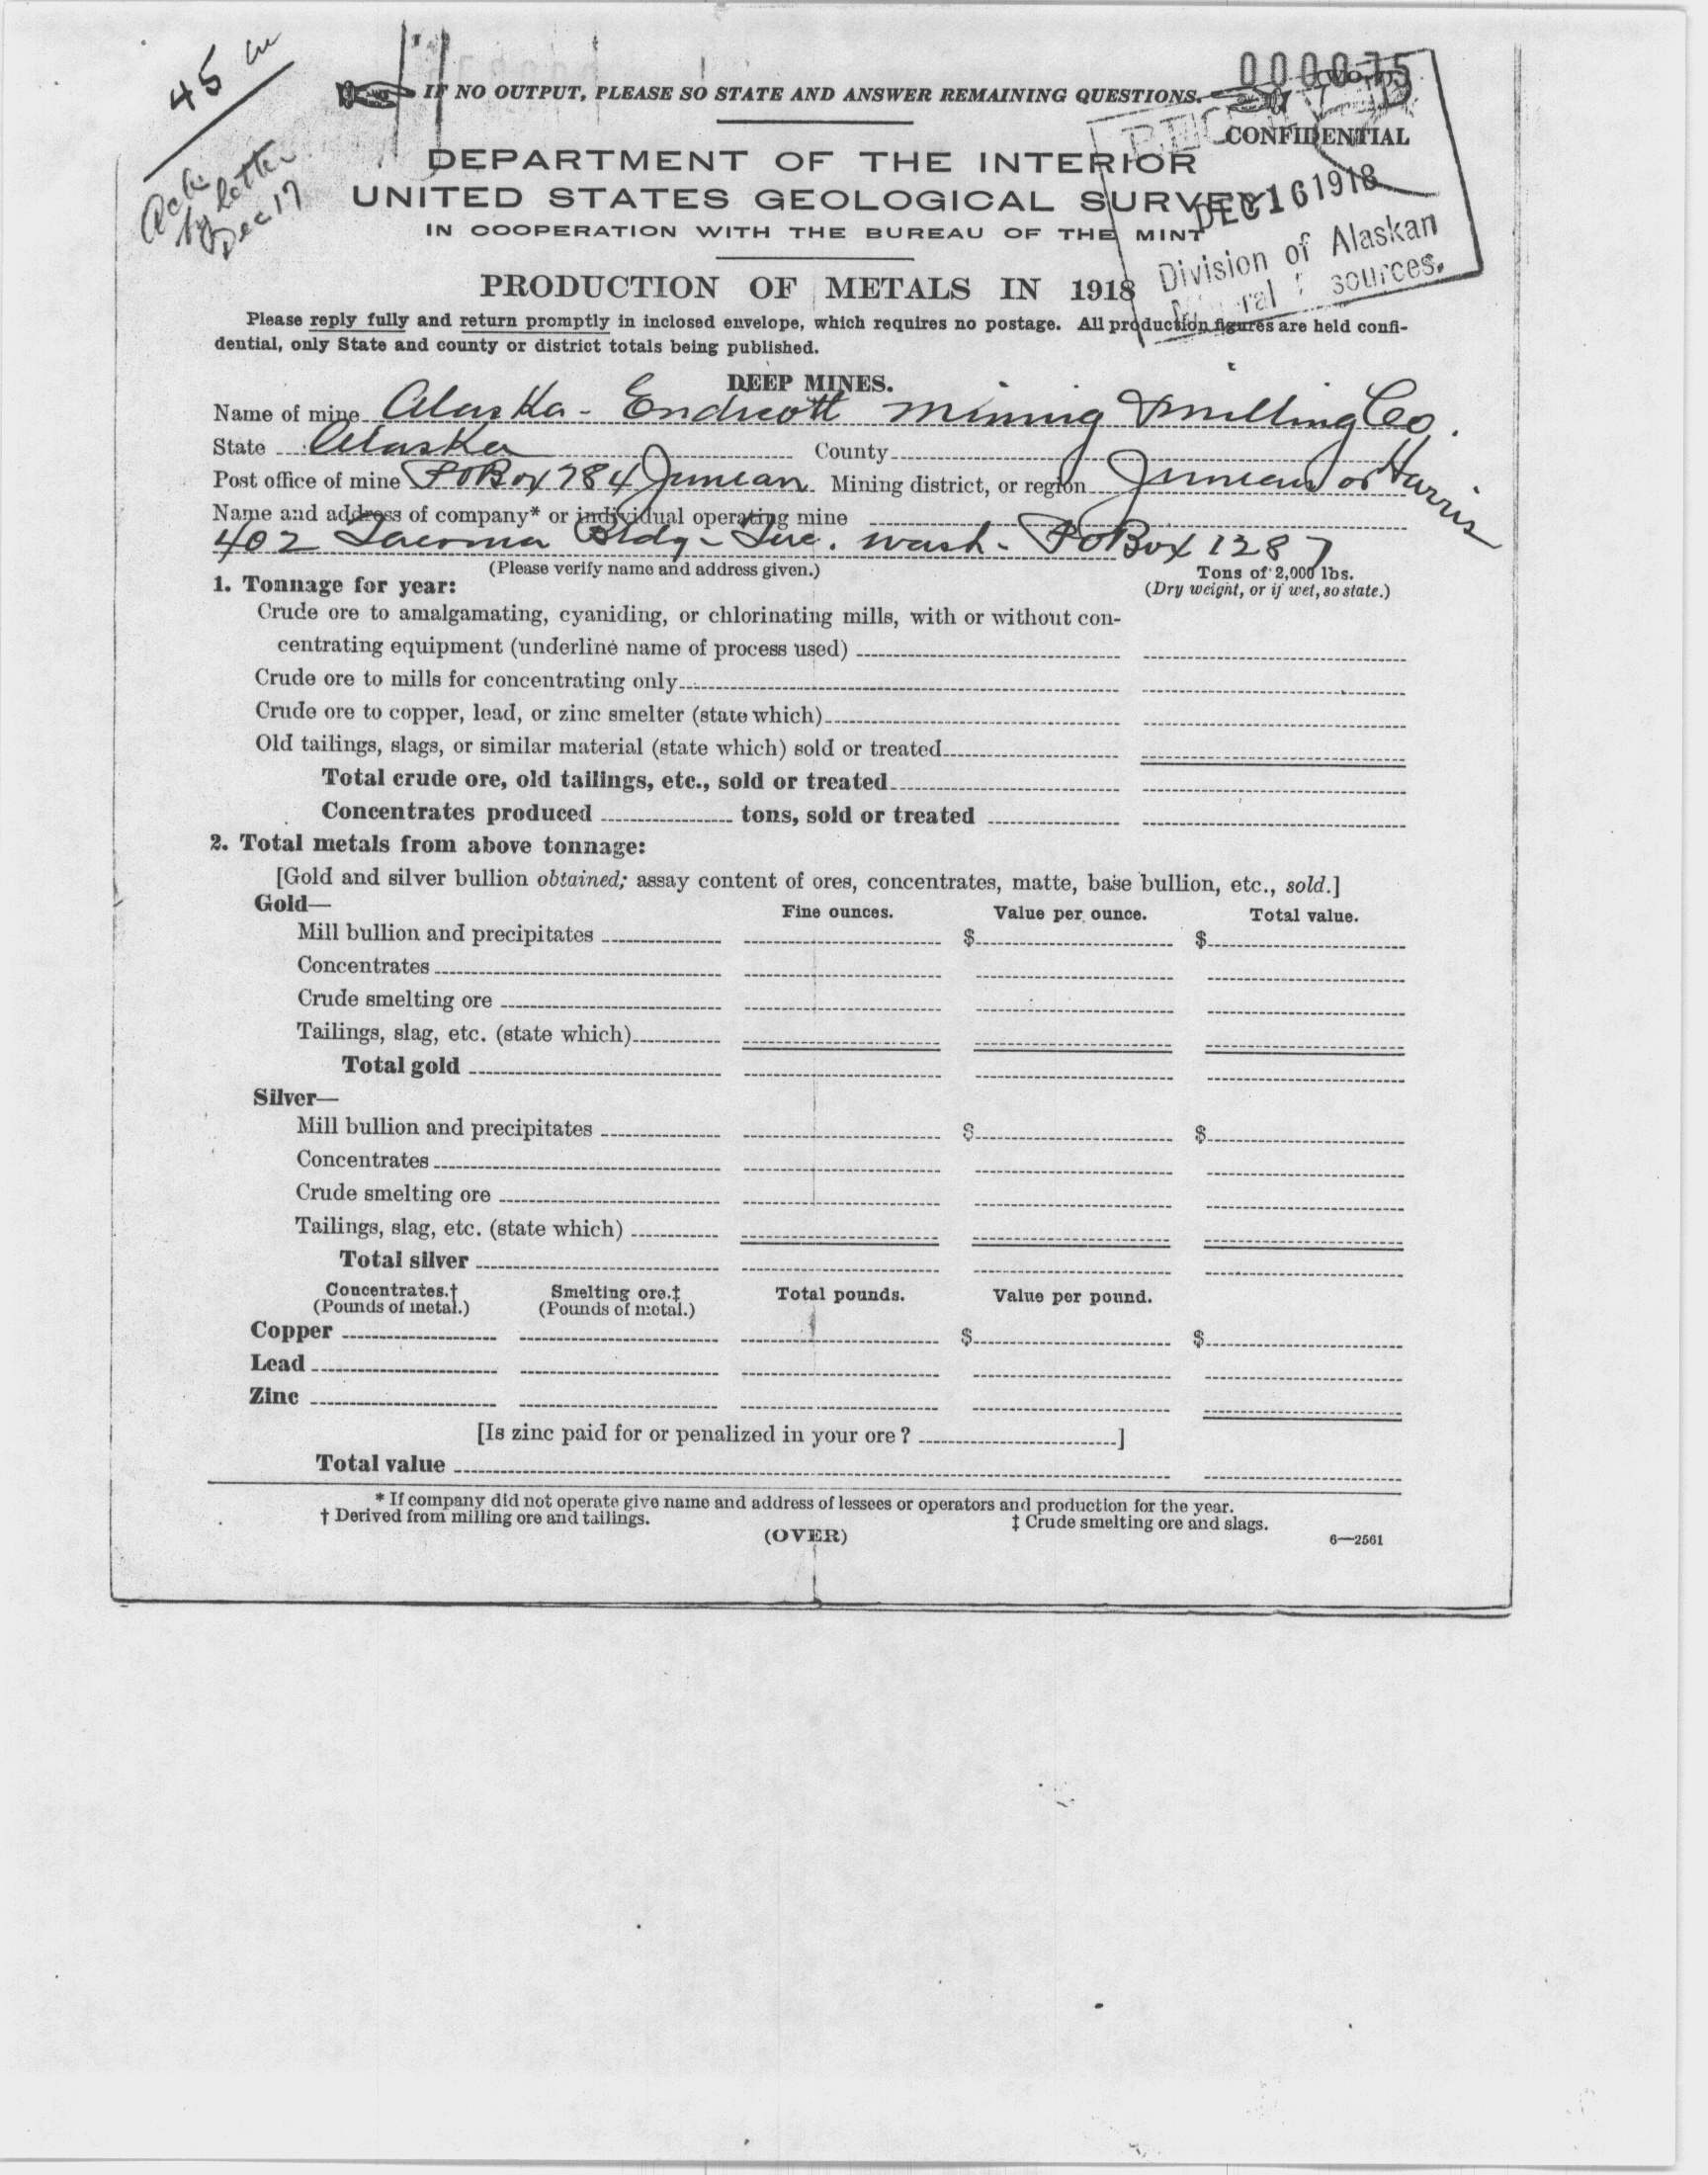 45
000075
IF NO OUTPUT, PLEASE SO STATE AND ANSWER REMAINING QUESTIONS.
CONFIDENTIAL
by letter
Dec 17
DEPARTMENT OF THE INTERIOR
UNITED STATES GEOLOGICAL SURVEY
DEC 16 1918
IN COOPERATION WITH THE BUREAU OF THE MINT
Division of Alaskan
PRODUCTION OF METALS IN 1918
Please reply fully and return promptly in inclosed envelope, which requires no postage. All production figures are held confi-
dential, only State and county or district totals being published.
DEEP MINES.
Name of mine Alaska - Endicott Mining & Milling Co.
State Alaska County
Post office of mine PO Box 784 Juneau Mining district, or region Juneau or Harris
Name and address of company* or individual operating mine
402 Tacoma Bldg - Wash - PO Box 1287
(Please verify name and address given.)
Tons of 2,000 lbs.
1. Tonnage for year:
(Dry weight, or if wet, so state.)
Crude ore to amalgamating, cyaniding, or chlorinating mills, with or without con-
centrating equipment (underline name of process used)
Crude ore to mills for concentrating only
Crude ore to copper, lead, or zinc smelter (state which)
Old tailings, slags, or similar material (state which) sold or treated
Total crude ore, old tailings, etc., sold or treated
Concentrates produced tons, sold or treated
2. Total metals from above tonnage:
[Gold and silver bullion obtained; assay content of ores, concentrates, matte, base bullion, etc., sold.]
Gold—
Fine ounces. Value per ounce. Total value.
Mill bullion and precipitates $ $
Concentrates
Crude smelting ore
Tailings, slag, etc. (state which)
Total gold
Silver—
Mill bullion and precipitates $ $
Concentrates
Crude smelting ore
Tailings, slag, etc. (state which)
Total silver
Concentrates.† Smelting ore.‡ Total pounds. Value per pound.
(Pounds of metal.) (Pounds of metal.)
Copper $ $
Lead
Zinc
[Is zinc paid for or penalized in your ore? ]
Total value
* If company did not operate give name and address of lessees or operators and production for the year.
† Derived from milling ore and tailings. ‡ Crude smelting ore and slags.
(OVER) 6—2561